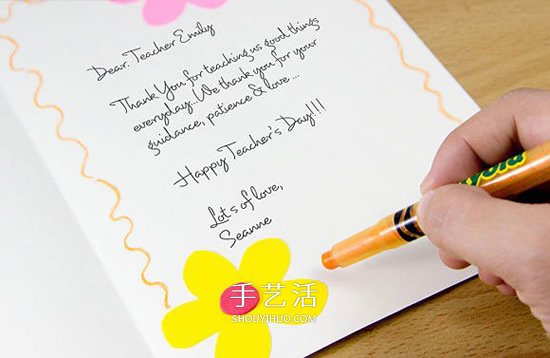 Dear. Teacher Emily
Thank You for teaching us good things
everyday..We thank you for your
guidance, patience & love ...
Happy Teacher's Day!!!
Lots of love,
Seanne
手艺活
SHOUYIHUO.COM